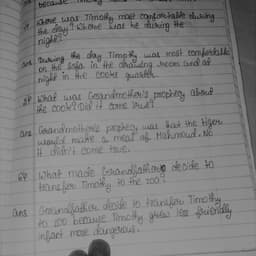 because Timothy
Where was Timothy most comfortable during
the day? Where was he during the
night?
Ans During the day Timothy was most comfortable
on the sofa in the drawing room and at
night in the cooks quarter.
What was Grandmother's prophecy about
the cook? Did it come true?
ans Grandmother's prophecy was that the tiger
would make a meal of Mahmoud. No
it didn't come true.
What made Grandfather decide to
transfer Timothy to the zoo?
ans Grandfather decide to transfer Timothy
to zoo because Timothy grew less friendly
infact more dangerous.